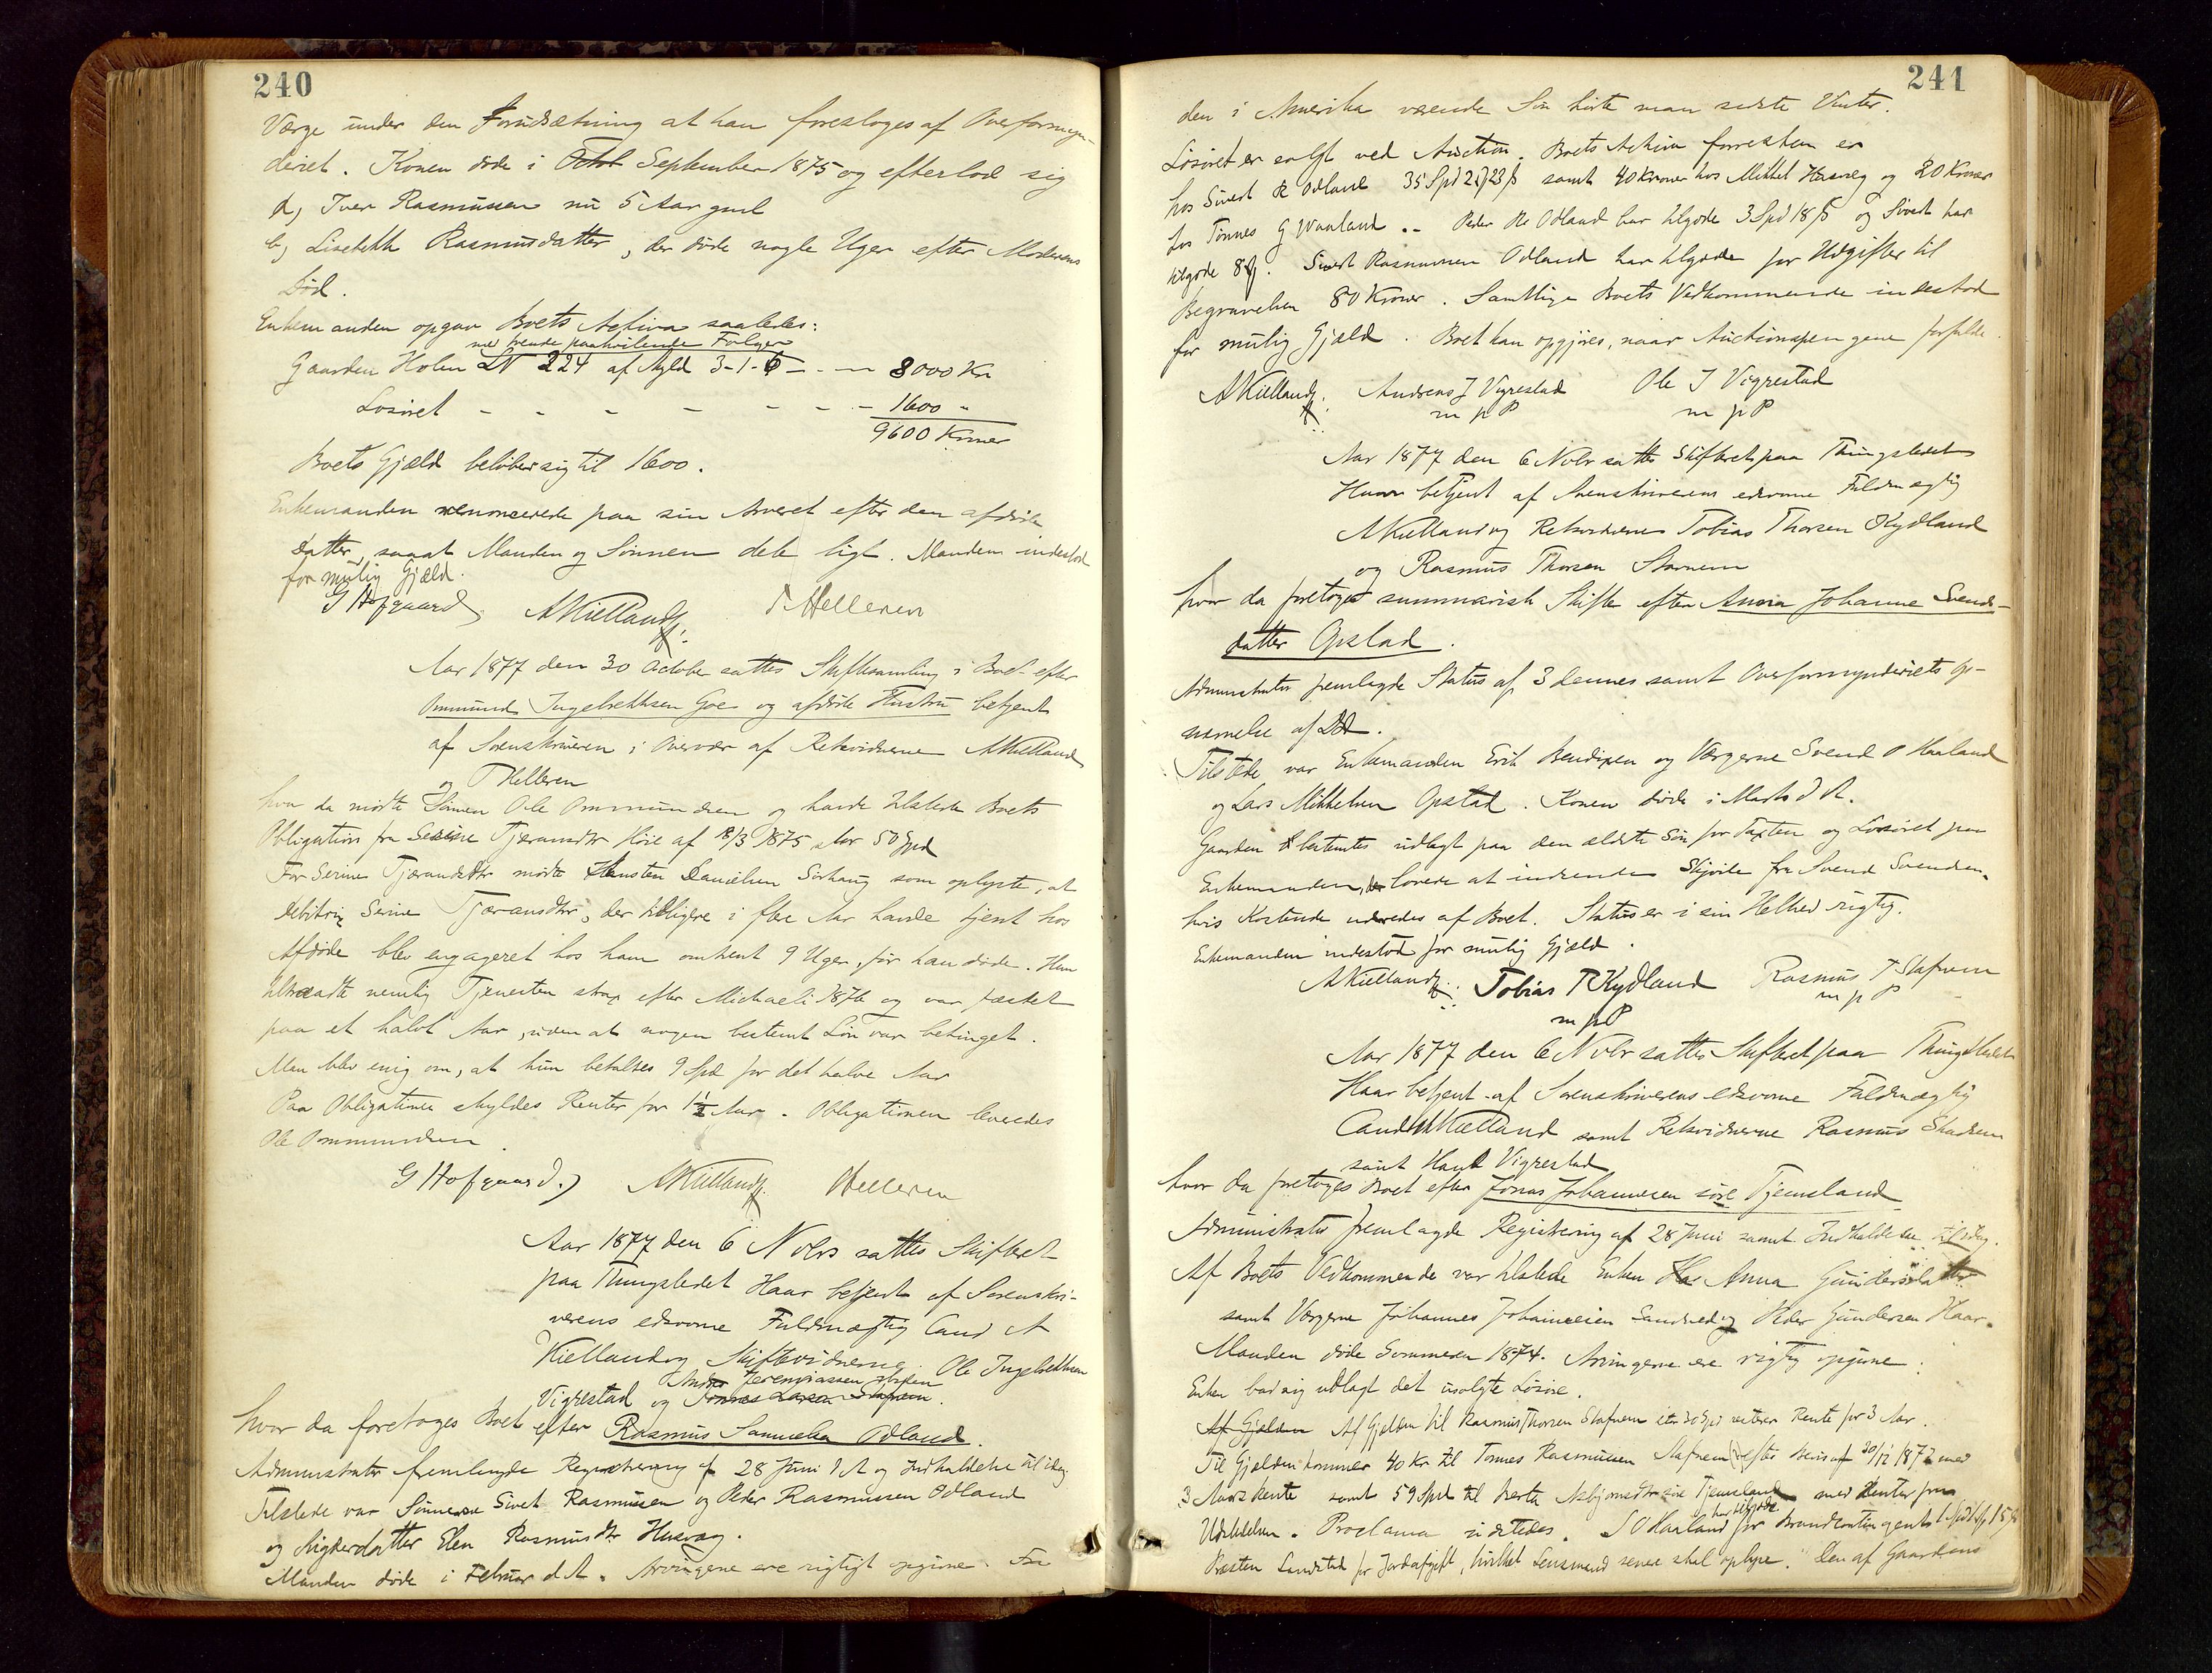 240
Værge under den Forudsætning at han foresloges af Overformyn-
deriet. Konen døde i Octob September 1875 og efterlod sig
a, Iver Rasmussen nu 5 Aar gml
b, Lisebeth Rasmusdatter, der døde nogle Uger efter Moderens
Død.
Enkemanden opgav Boets Activa saaledes:
med paahvilende Følger
Gaarden Holen LN 224 af Skyld 3-1-6 - . - 8000 Kr
Løsøret - - - - - - - 1600 "
9600 Kroner
Boets Gjæld beløber sig til 1600.
Enkemanden renoncerede paa sin Arveret efter den afdøde
Datter, saaat Manden og Sønnen dele ligt. Manden indestod
for mulig Gjæld.
G Hofgaard AKielland f: T Helleren
Aar 1877 den 30 October sattes Skiftesamling i Boet efter
Ommund Ingebrethsen Goe og afdøde Hustru betjent
af Sorenskriveren i Overvær af Retsvidnerne AKielland
og T Helleren
hvor da mødte Sønnen Ole Ommundsen og havde tilstede Boets
Obligation fra Serine Tjeransdtr Høie af 18/3 1875 stor 50 Spd
For Serine Tjerandsdtr mødte Danielsen Sirhaug som oplyste, at
Debitrix Serine Tjæransdtr, der tidligere i flere Aar havde tjent hos
Afdøde blev engageret hos ham omtrent 9 Uger, før han døde. Hun
tiltraadte nemlig Tjenesten strax efter Michaeli 1876 og var fæstet
paa et halvt Aar, uden at nogen bestemt Løn var betinget.
Man blev enig om, at hun betaltes 9 Spd for det halve Aar
Paa Obligationen skyldes Renter for 1½ Aar. Obligationen leveredes
Ole Ommundsen
G Hofgaard. AKielland f. Helleren
Aar 1877 den 6 Novbr sattes Skifteret
paa Thingstedet Haar betjent af Sorenskri-
verens edsvorne Fuldmægtig Cand A
Kielland og Skiftevidnerne Ole Ingebrethsen
Andr Jeremiassen
Vigrestad og Tønnes Larsen Stafnem.
hvor da foretoges Boet efter Rasmus Samuelsen Odland.
Administrator fremlagde Registrering af 28 Juni d A og Indkaldelse til idag.
Tilstede var Sønnerne Sivert Rasmussen og Peder Rasmussen Odland
og Svigerdatter Elen Rasmusdtr Husvæg.
Manden døde i Februar d. A. Arvingerne ere rigtigt opgivne. Fra
241
den i Amerika værende Søn hørte man sidste Vinter.
Løsøret er solgt ved Auction. Boets Activa forresten er
hos Sivert R Odland 35 Spd 2 23 ß samt 40 Kroner hos Mikkel Husvæg og 20 Kroner
hos Tønnes G Waaland .- Peder R Odland har tilgode 3 Spd 18 ß og Sivert har
tilgode 8 ß. Sivert Rasmussen Odland har tilgode for Udgifter til
Begravelsen 80 Kroner. Samtlige Boets Vedkommende indestod
for mulig Gjæld. Boet kan opgjøres, naar Auctionspengene forfalde.
AKielland f: Andreas J Vigrestad Ole I Vigrestad
m p P m p P
Aar 1877 den 6 Novbr sattes Skifteret paa Thingstedet
Haar betjent af Sorenskriverens edsvorne Fuldmægtig
AKielland og Retsvidnerne Tobias Thorsen Kydland
og Rasmus Thorsen Stavnem
hvor da foretoges summarisk Skifte efter Anna Johanne Svends-
datter Opstad.
Administrator fremlagde Status af 3 dennes samt Overformynderiets Op-
nævnelse af Dd.
Tilstede var Enkemanden Erik Bendixen og Værgerne Svend O Haaland
og Lars Mikkelsen Opstad. Konen døde i Marts d A.
Gaarden bestemtes udlagt paa den ældste Søn for Taxten og Løsøret paa
Enkemanden, der lovede at indsende Skjøde fra Svend Svendsen,
hvis Kostende udredes af Boet. Status er i sin Helhed rigtig.
Enkemanden indestod for mulig Gjæld.
AKielland f: Tobias T Kydland Rasmus T Stafnem
m p P m p P
Aar 1877 den 6 Novbr sattes Skifteret paa Thingstedet
Haar betjent af Sorenskriverens edsvorne Fuldmægtig
Cand AKielland samt Retsvidnerne Rasmus
samt Vigrestad
hvor da foretoges Boet efter Jonas Johannesen søre Tjemsland
Administrator fremlagde Registrering af 28 Juni samt Indkaldelse til idag.
Af Boets Vedkommende var tilstede Enken Anna Gundersdatter
samt Værgerne Johannes Johannesen Sandved og Peder Gundersen Haar.
Manden døde Sommeren 1874. Arvingerne ere rigtig opgivne.
Enken bad sig udlagt det usolgte Løsøre.
Af Gjælden Af Gjælden til Rasmus Thorsen Stafnem 30 Spd resterer Rente for 3 Aar.
Til Gjælden kommer 40 Kr til Tønnes Rasmussen Stafnem efter Bevis af 30/12 1872 med
3 Aars Rente samt 59 Spd til Berta Asbjørnsdtr søre Tjemsland med Renter fra
har tilgode
Udstedelsen. Proclama udstedes. S O Haaland for Brandcontingent 1 Spd 15 ß
Præsten Landstad for Jordafgift, hvilket Lensmand senere skal oplyse. Den af Gaardens